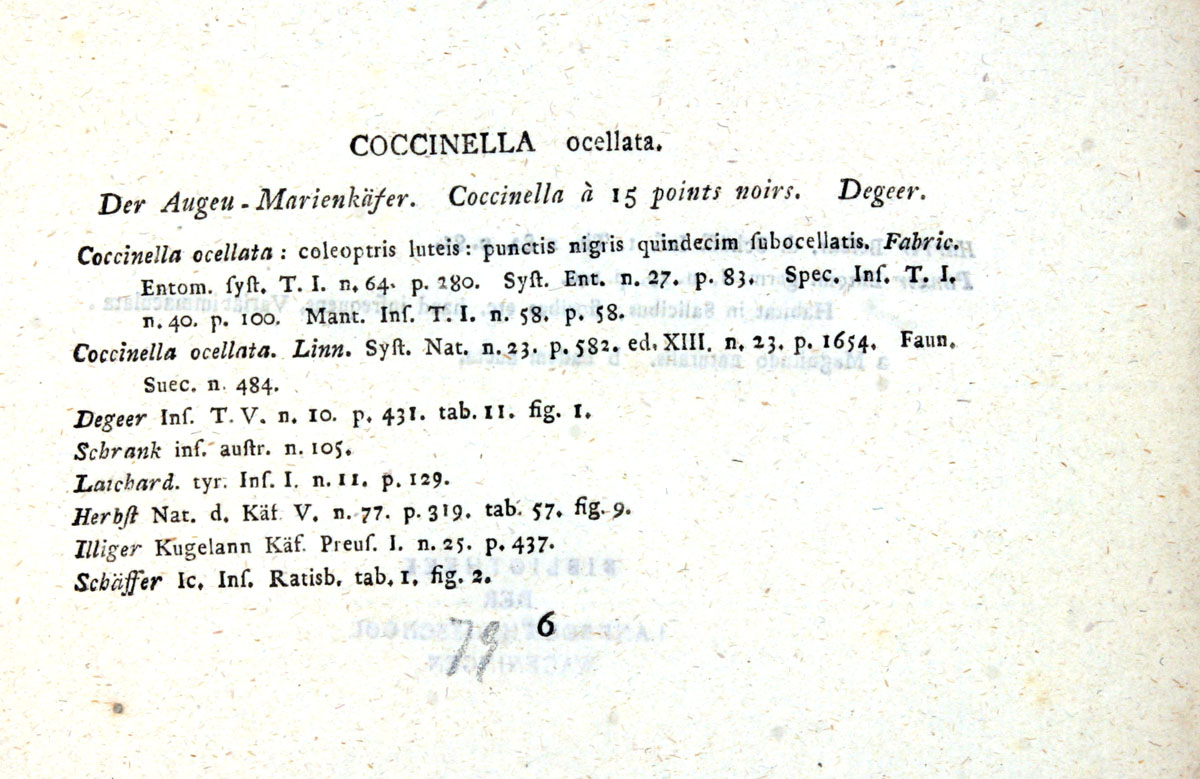 COCCINELLA ocellata.
Der Augeu-Marienkäfer. Coccinella à 15 points noirs. Degeer.
Coccinella ocellata: coleoptris luteis: punctis nigris quindecim ſubocellatis. Fabric.
Entom. ſyſt. T. I. n. 64. p. 280. Syſt. Ent. n. 27. p. 83. Spec. Inſ. T. I.
n. 40. p. 100. Mant. Inſ. T. I. n. 58. p. 58.
Coccinella ocellata. Linn. Syſt. Nat. n. 23. p. 582. ed. XIII. n. 23. p. 1654. Faun.
Suec. n. 484.
Degeer Inſ. T. V. n. 10. p. 431. tab. 11. fig. 1.
Schrank inſ. auſtr. n. 105.
Laichard. tyr. Inſ. I. n. 11. p. 129.
Herbſt Nat. d. Käf. V. n. 77. p. 319. tab. 57. fig. 9.
Illiger Kugelann Käf. Preuſ. I. n. 25. p. 437.
Schäffer Ic. Inſ. Ratisb. tab. 1. fig. 2.
6
79